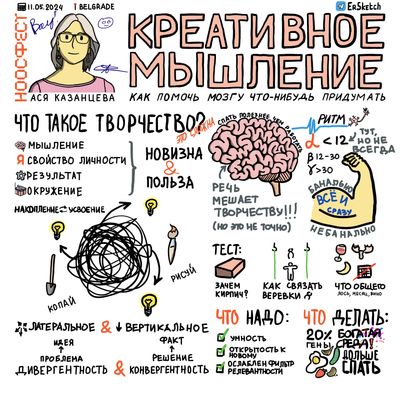 11.05.2024
BELGRADE
EnSketch
НООСФЕСТ
КРЕАТИВНОЕ
МЫШЛЕНИЕ
АСЯ КАЗАНЦЕВА
КАК ПОМОЧЬ МОЗГУ ЧТО-НИБУДЬ ПРИДУМАТЬ
ЧТО ТАКОЕ ТВОРЧЕСТВО?
МЫШЛЕНИЕ
Я СВОЙСТВО ЛИЧНОСТИ
РЕЗУЛЬТАТ
ОКРУЖЕНИЕ
НОВИЗНА
&
ПОЛЬЗА
СПАТЬ ПОЛЕЗНЕЕ ЧЕМ РАБОТАТЬ
РИТМ
α <12
ТУТ,
НО НЕ
ВСЕГДА
β 12-30
γ >30
РЕЧЬ
МЕШАЕТ
ТВОРЧЕСТВУ!!!
(НО ЭТО НЕ ТОЧНО)
БАНАЛЬНО
ВСЁ И
СРАЗУ
НЕБАНАЛЬНО
НАКОПЛЕНИЕ ⇄ УСВОЕНИЕ
КОПАЙ
РИСУЙ
ТЕСТ:
ЗАЧЕМ
КИРПИЧ?
КАК СВЯЗАТЬ
ВЕРЕВКИ
ЧТО ОБЩЕГО
ЛОСЬ, МЕСЯЦ, ВИНО
ЛАТЕРАЛЬНОЕ & ВЕРТИКАЛЬНОЕ
ИДЕЯ
ПРОБЛЕМА
ФАКТ
РЕШЕНИЕ
ДИВЕРГЕНТНОСТЬ & КОНВЕРГЕНТНОСТЬ
ЧТО НАДО:
УМНОСТЬ
ОТКРЫТОСТЬ К
НОВОМУ
ОСЛАБЛЕН ФИЛЬТР
РЕЛЕВАНТНОСТИ
ЧТО ДЕЛАТЬ:
20%
ГЕНЫ
БОГАТАЯ
СРЕДА!
ДОЛЬШЕ
СПАТЬ